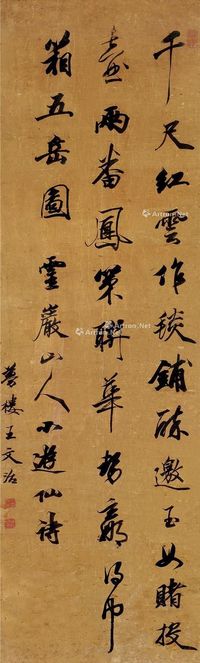 千尺紅雲作毯鋪醉邀玉女賭投
壺兩番鳳策聯華勢贏得巾
箱五岳圖 靈巖山人小遊仙詩
夢樓王文治